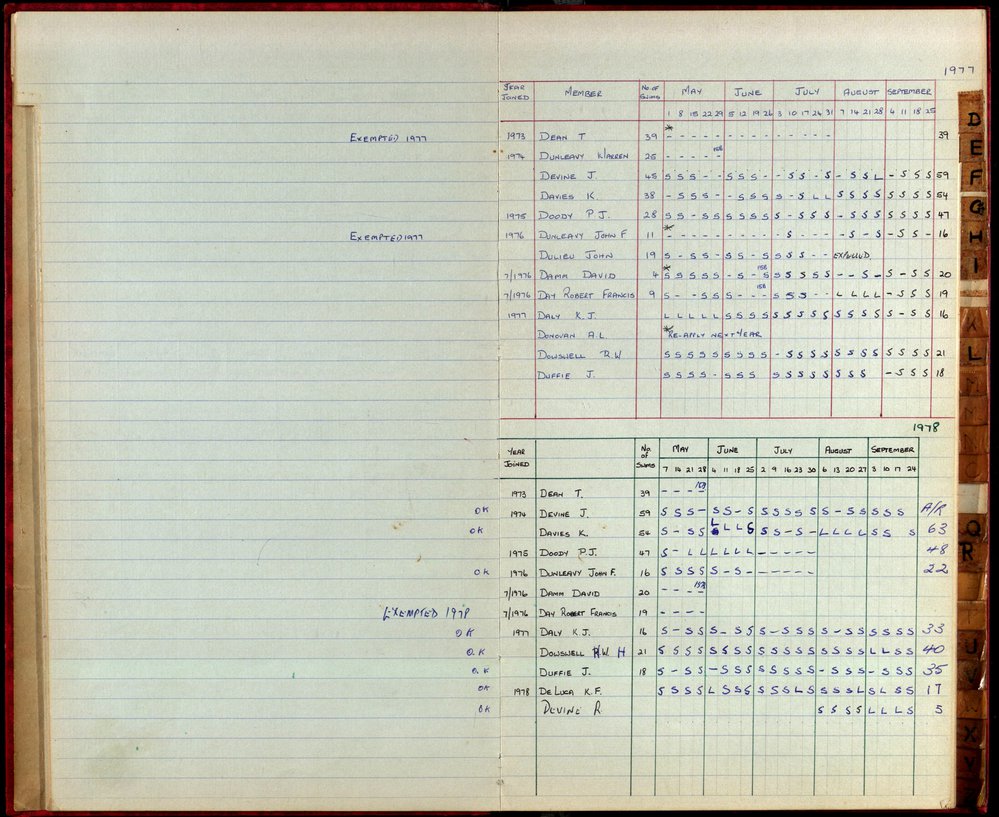 1977
YEAR JOINED MEMBER No. OF SWIMS MAY JUNE JULY AUGUST SEPTEMBER
1 8 15 22 29 5 12 19 26 3 10 17 24 31 7 14 21 28 4 11 18 25
EXEMPTED 1977 1973 DEAN T 39 * - - - - - - - - - - - - - - 39
1974 DUNLEAVY WARREN 25 - - - - - 158
DEVINE J. 45 S S S - - S S S - - S S - S - S S L - S S S 59
DAVIES K. 38 - S S S - - S S S S - S L L S S S S S S S S 54
1975 DOODY P J. 28 S S - S S S S S S S - S S S - S S S S S S S 47
EXEMPTED 1977 1976 DUNLEAVY JOHN F 11 * - - - - - - - - - - S - - - - S - S - S S - 16
DULIEU JOHN 19 S - S S - S S - S S S S - - EXPELLED
7/1976 DAMM DAVID 4 * S S S S S - S - S 158 S S S S S - - S - S - S S 20
7/1976 DAY ROBERT FRANCIS 9 S - - S S S - - - 158 S S S - - L L L L - S S S 19
1977 DALY K.J. L L L L L S S S S S S S S S S S S S S - S S 16
DONOVAN A.L. * RE-APPLY NEXT YEAR
DOWSWELL R.W S S S S S S S S S - S S S S S S S S S S S S 21
DUFFIE J. S S S S - S S S S S S S S S S S - S S S 18
1978
YEAR JOINED No. OF SWIMS MAY JUNE JULY AUGUST SEPTEMBER
7 14 21 28 4 11 18 25 2 9 16 23 30 6 13 20 27 3 10 17 24
1973 DEAN T. 39 - - - -
OK 1974 DEVINE J. 59 S S S - S S - S S S S S S S - S S S S S A/R
OK DAVIES K. 54 S - S S L L L S S S - S - L L L L S S S 63
1975 DOODY P.J. 47 S - L L L L L L - - - - - 48
OK 1976 DUNLEAVY JOHN F. 16 S S S S S - S - - - - - - 22
7/1976 DAMM DAVID 20 - - - -
EXEMPTED 1978 7/1976 DAY ROBERT FRANCIS 19 - - - -
OK 1977 DALY K.J. 16 S - S S S - S S S - S S S S - S S S S S S 33
O.K DOWSWELL W H 21 S S S S S S S S S S S S S S S S S L L S S 40
O.K DUFFIE J. 18 S - S S - S S S S S S S S - S S S - S S S 35
OK 1978 DE LUCA K.F. S S S S L S S S S S S L S S S S L S L S S 17
OK DEVINE R S S S S L L L S 5
D
E
F
G
H
I
K
L
M
M
N
O
Q
R
U
W
X
Y